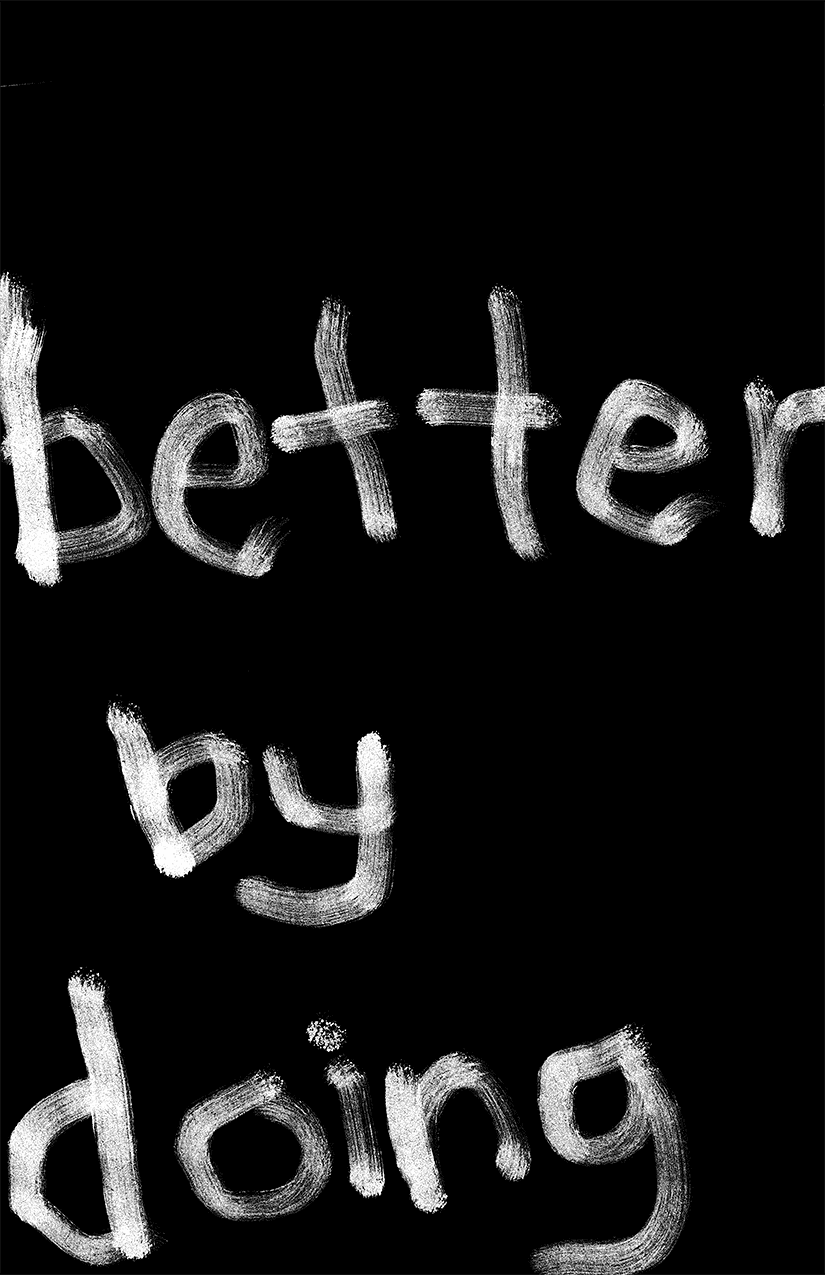 better
by
doing